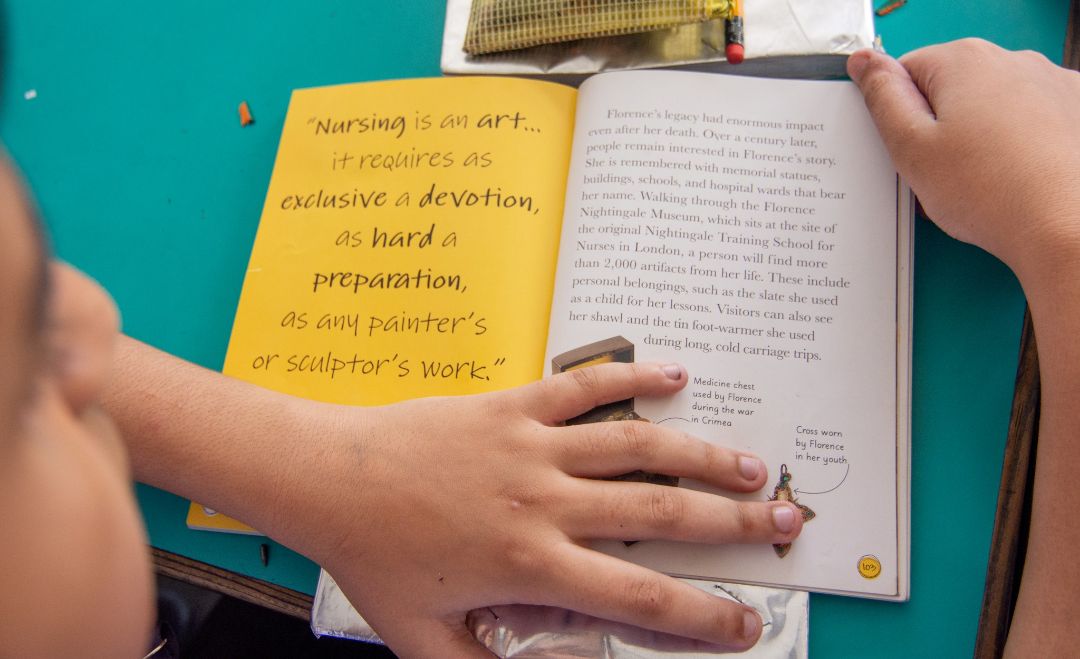 “Nursing is an art...
it requires as
exclusive a devotion,
as hard a
preparation,
as any painter’s
or sculptor’s work.”
Florence’s legacy had enormous impact
even after her death. Over a century later,
people remain interested in Florence’s story.
She is remembered with memorial statues,
buildings, schools, and hospital wards that bear
her name. Walking through the Florence
Nightingale Museum, which sits at the site of
the original Nightingale Training School for
Nurses in London, a person will find more
than 2,000 artifacts from her life. These include
personal belongings, such as the slate she used
as a child for her lessons. Visitors can also see
her shawl and the tin foot-warmer she used
during long, cold carriage trips.
Medicine chest
used by Florence
during the war
in Crimea
Cross worn
by Florence
in her youth
103